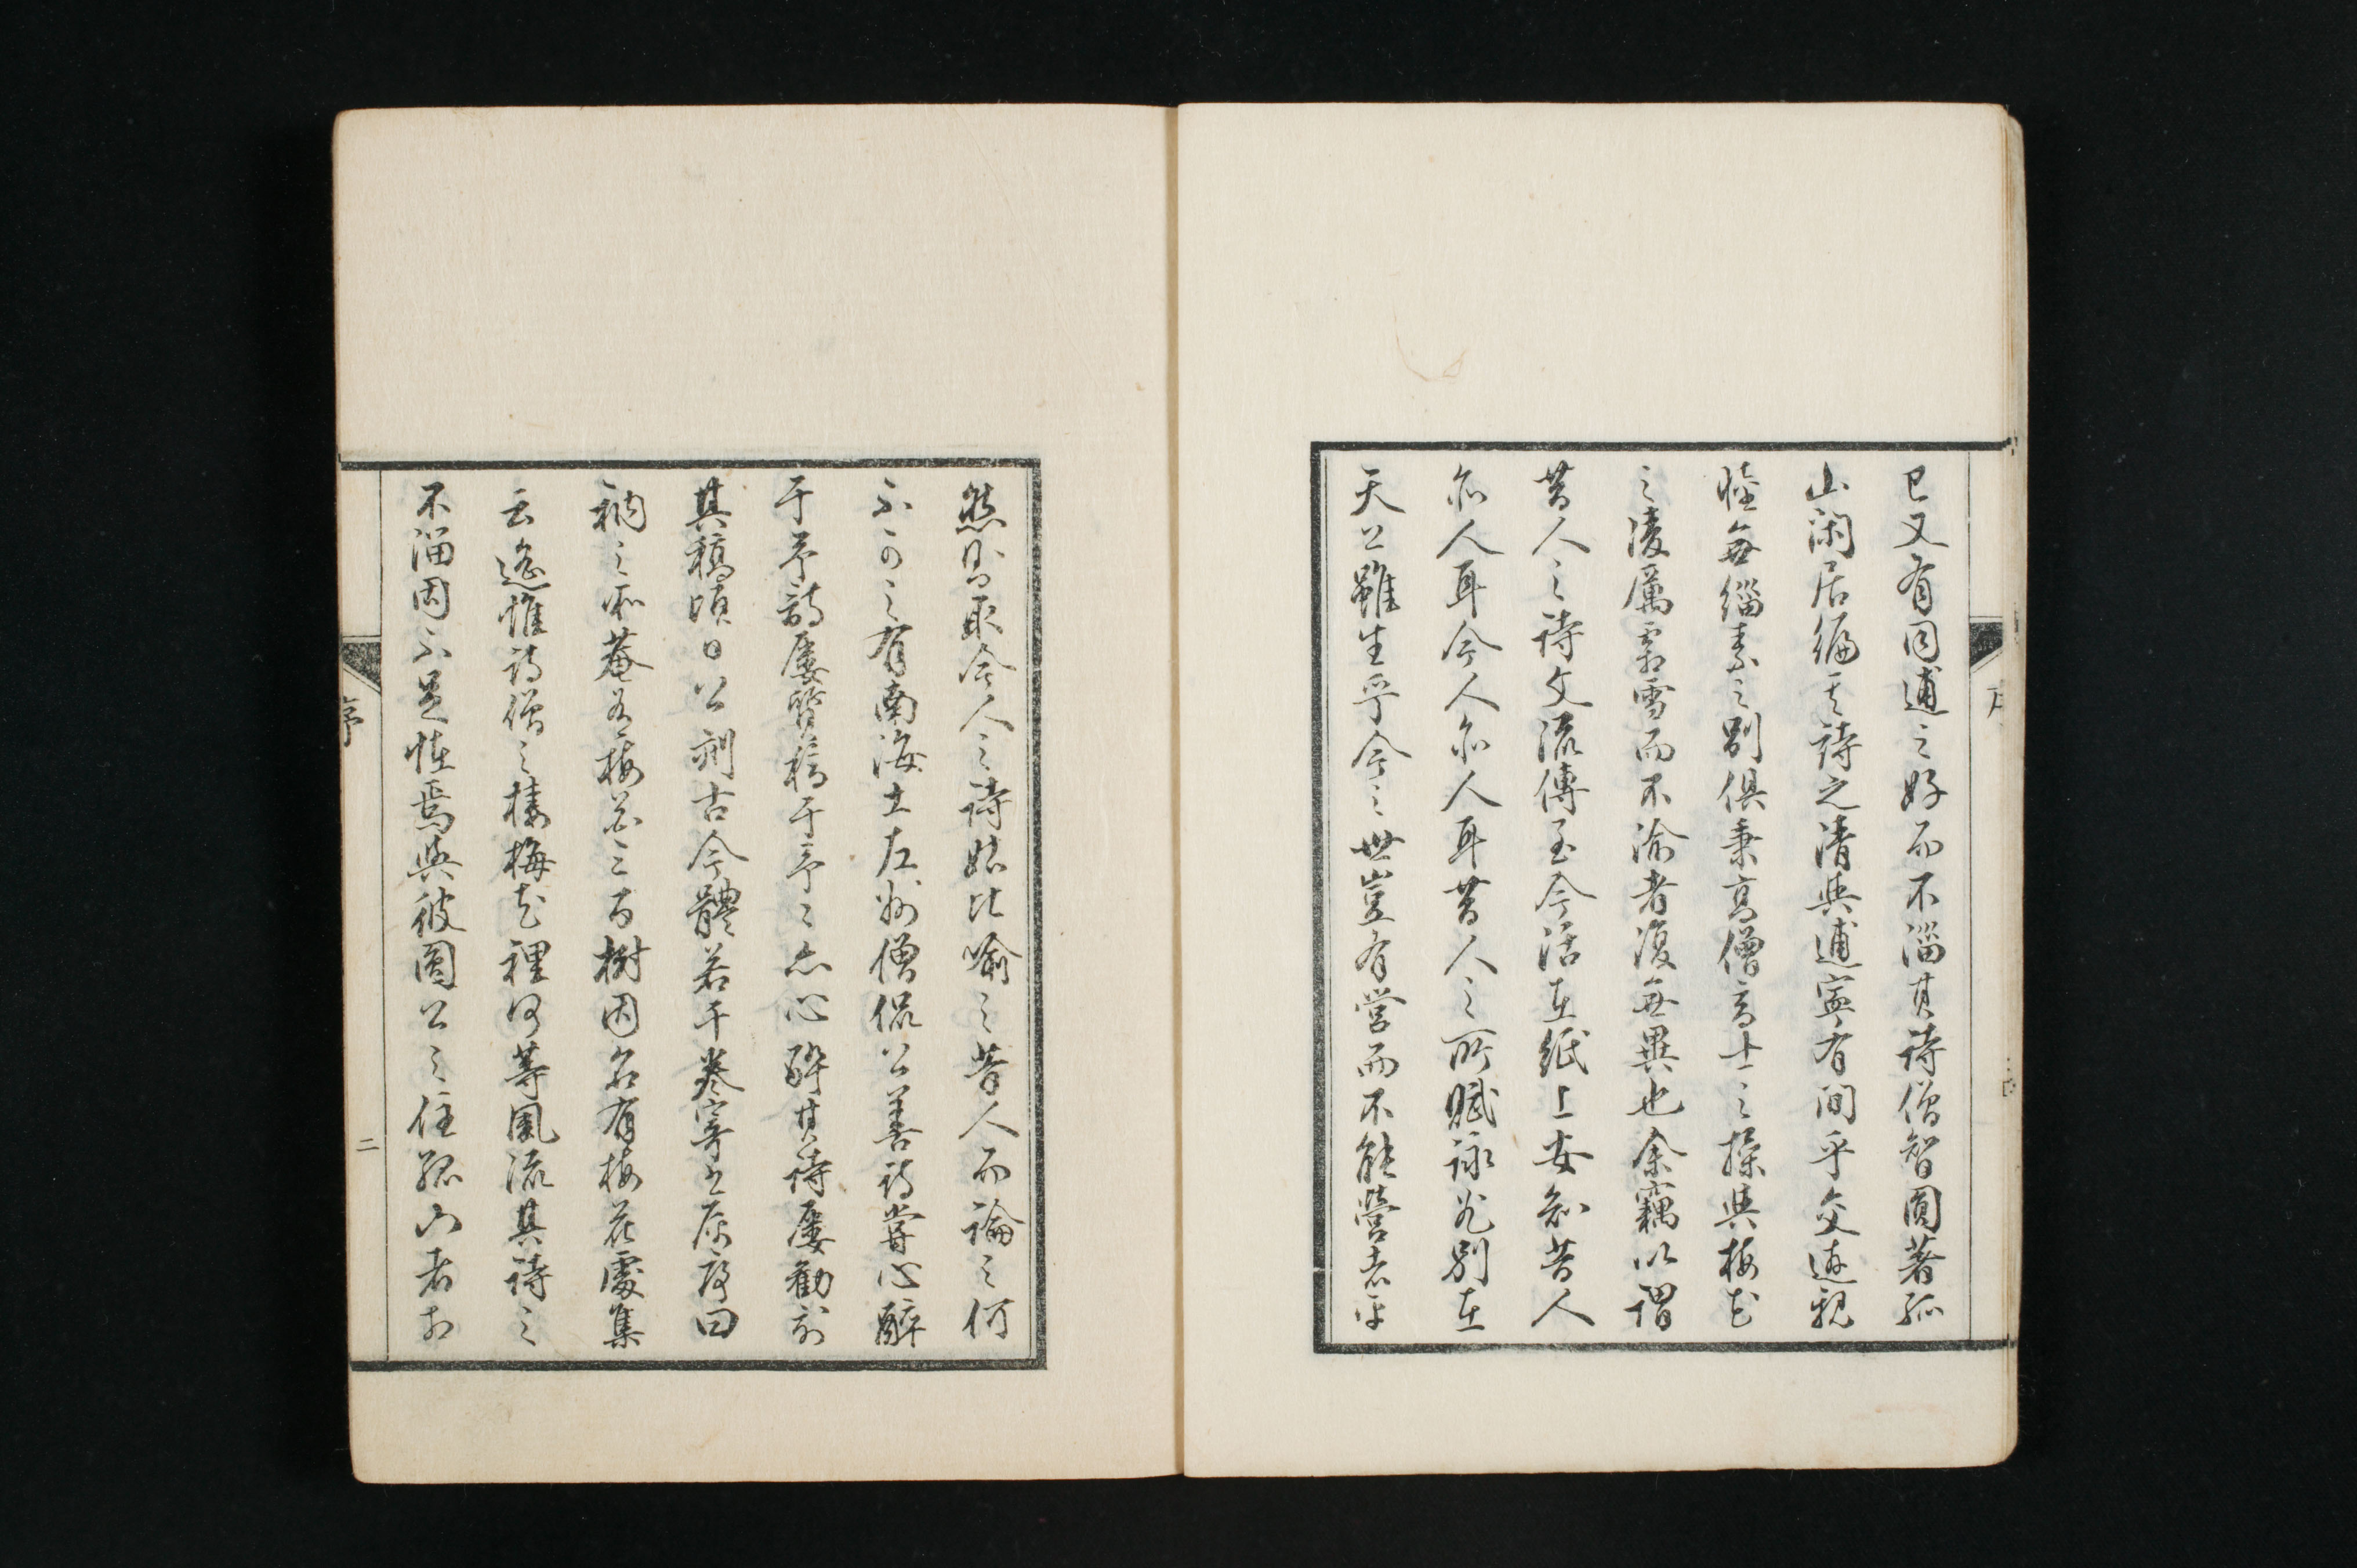 已又有同逋之好而不淄其詩僧智圓著孤
山閑居編其詩之清與逋寧有間乎交逋親
睦無緇素之別俱秉高僧高士之操與梅花
之凌厲霜雪而不渝者復無異也余竊以謂
昔人之詩文流傳至今活在紙上安知昔人
亦人耳今人亦人耳昔人之所賦詠光別在
天公雖生乎今之世豈有営而不能營者乎
然則取今人之詩姑比喻之昔人而論之何
不可之有南海土左州僧侃公善詩嘗心醉
于予詩屡贄稿于予予亦心醉其詩屡勸刻
其稿頃日公刻古今體若干卷寄上原序曰
衲之所菴多梅花三百樹因名有梅花處集
云遙惟詩僧之棲梅花裡何等風流其詩之
不淄固不足怪焉與彼圓公之住孤山者相
序
二